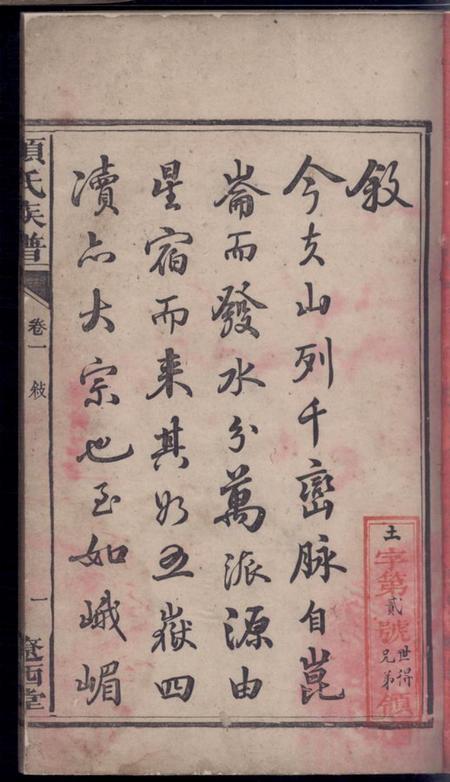 敘
今夫山列千巒脉自崑
崙而發水分萬派源由
星宿而来其於五嶽四
瀆亦大宗也至如峨嵋
氏族譜
卷一
敍
一
西堂
土
字第貳號
世得
兄弟